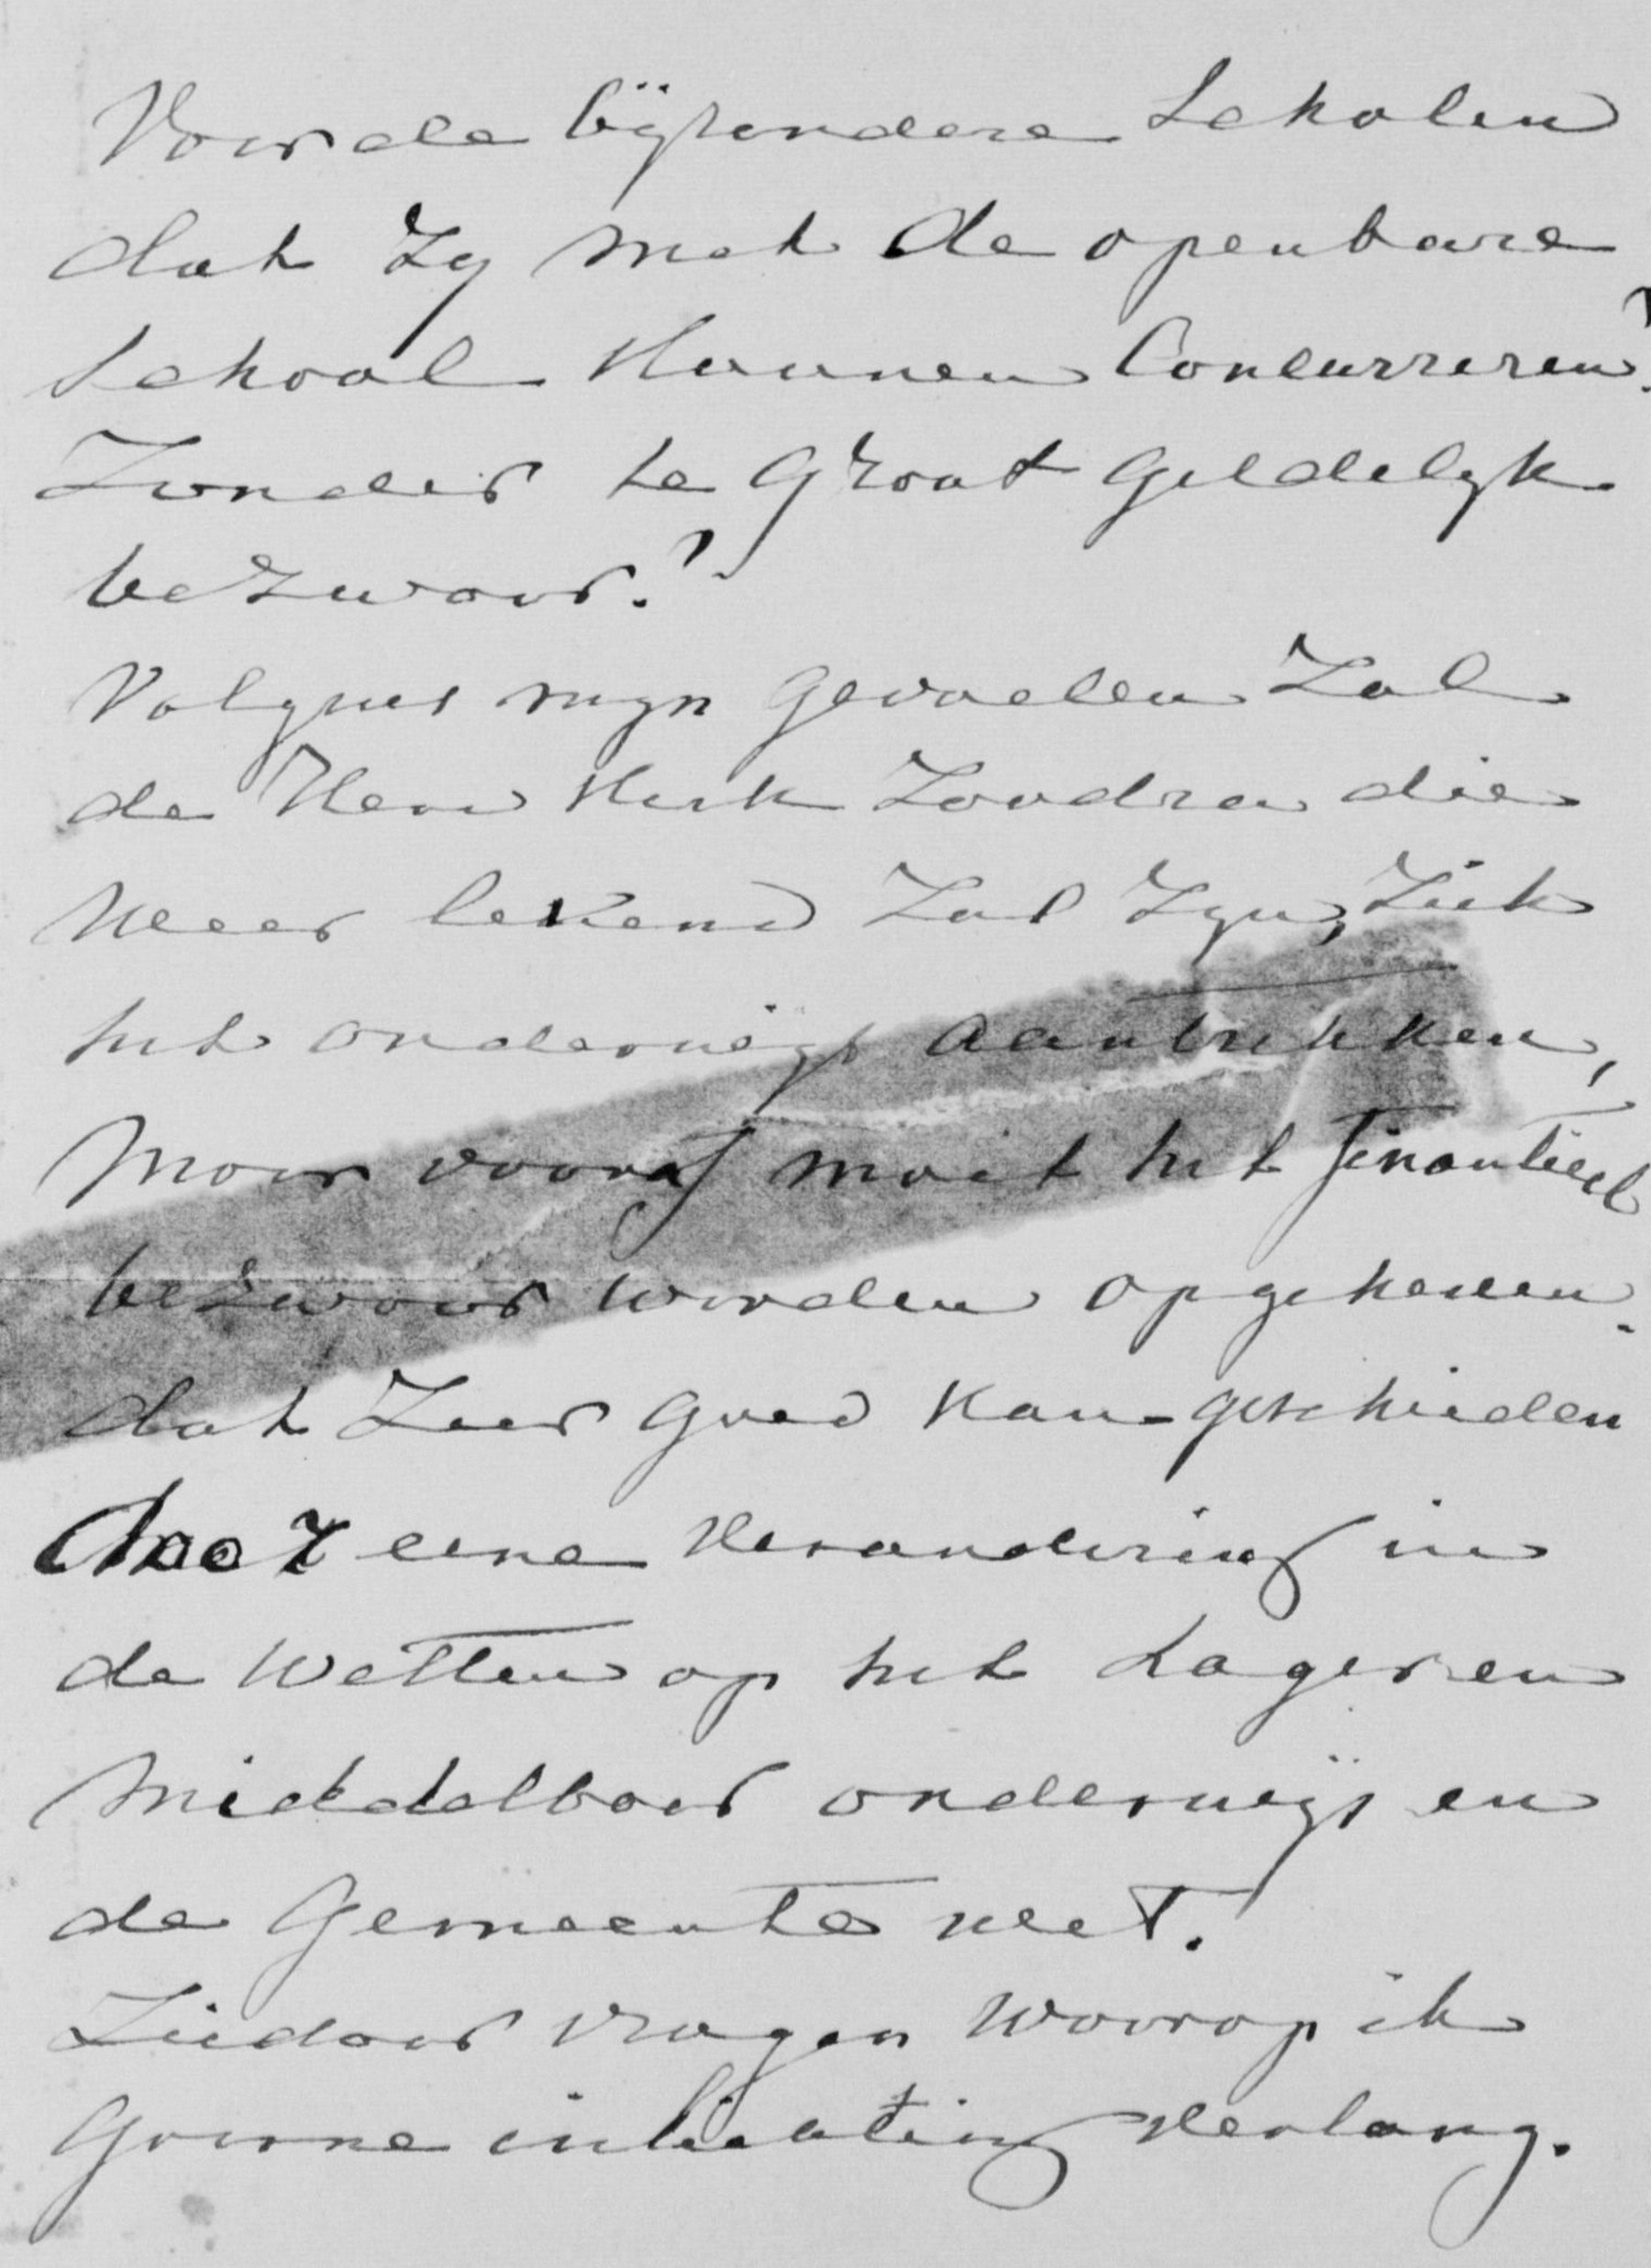 Voor de bijzondere Scholen
dat Zy met de openbare
School Kunnen Concurreren?
Zonder te Groot Geldelyk
bezwaar?
Volgens myn Gevoelen Zal
de Heer Kerk Zoodra die
Meer bekend Zal Zyn, Zich
het onderwijs aantrekken,
Maar vooraf moet het finantieel
bezwaar worden opgeheven.
dat Zeer Goed Kan geschieden
door eene Verandering in
de Wetten op het Lager en
Middelbaar onderwijs en
de Gemeente wet.
Ziedaar vragen Waarop ik
Gaarne inlichting Verlang.